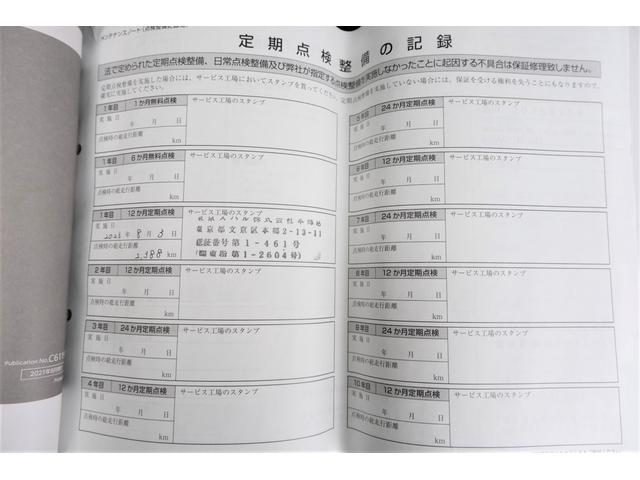 メンテナンスノート(点検整備記録
定期点検整備の記録
法で定められた定期点検整備、日常点検整備及び弊社が指定する点検整備を実施しなかったことに起因する不具合は保証修理致しません。
定期点検整備を実施した場合には、サービス工場においてスタンプを貰ってください。定期点検整備を実施していない場合には、保証を受ける権利を失うこともなりますので、
確実に実施してください。
1年目 1か月無料点検 サービス工場のスタンプ
実施日
年 月 日
点検時の総走行距離
km
1年目 6か月無料点検 サービス工場のスタンプ
実施日
年 月 日
点検時の総走行距離
km
1年目 12か月定期点検 サービス工場のスタンプ
実施日
年8月3日
点検時の総走行距離
2,388 km
東京スバル株式会社本郷店
東京都文京区本郷2-13-11
認証番号第1-461号
(関東指第1-2604号)
2年目 12か月定期点検 サービス工場のスタンプ
実施日
年 月 日
点検時の総走行距離
km
3年目 24か月定期点検 サービス工場のスタンプ
実施日
年 月 日
点検時の総走行距離
km
4年目 12か月定期点検 サービス工場のスタンプ
実施日
年 月 日
点検時の総走行距離
km
5年目 24か月定期点検 サービス工場のスタンプ
実施日
年 月 日
点検時の総走行距離
km
6年目 12か月定期点検 サービス工場のスタンプ
実施日
年 月 日
点検時の総走行距離
km
7年目 24か月定期点検 サービス工場のスタンプ
実施日
年 月 日
点検時の総走行距離
km
8年目 12か月定期点検 サービス工場のスタンプ
実施日
年 月 日
点検時の総走行距離
km
9年目 24か月定期点検 サービス工場のスタンプ
実施日
年 月 日
点検時の総走行距離
km
10年目 12か月定期点検 サービス工場のスタンプ
実施日
年 月 日
点検時の総走行距離
km
Publication No.
2021年8月